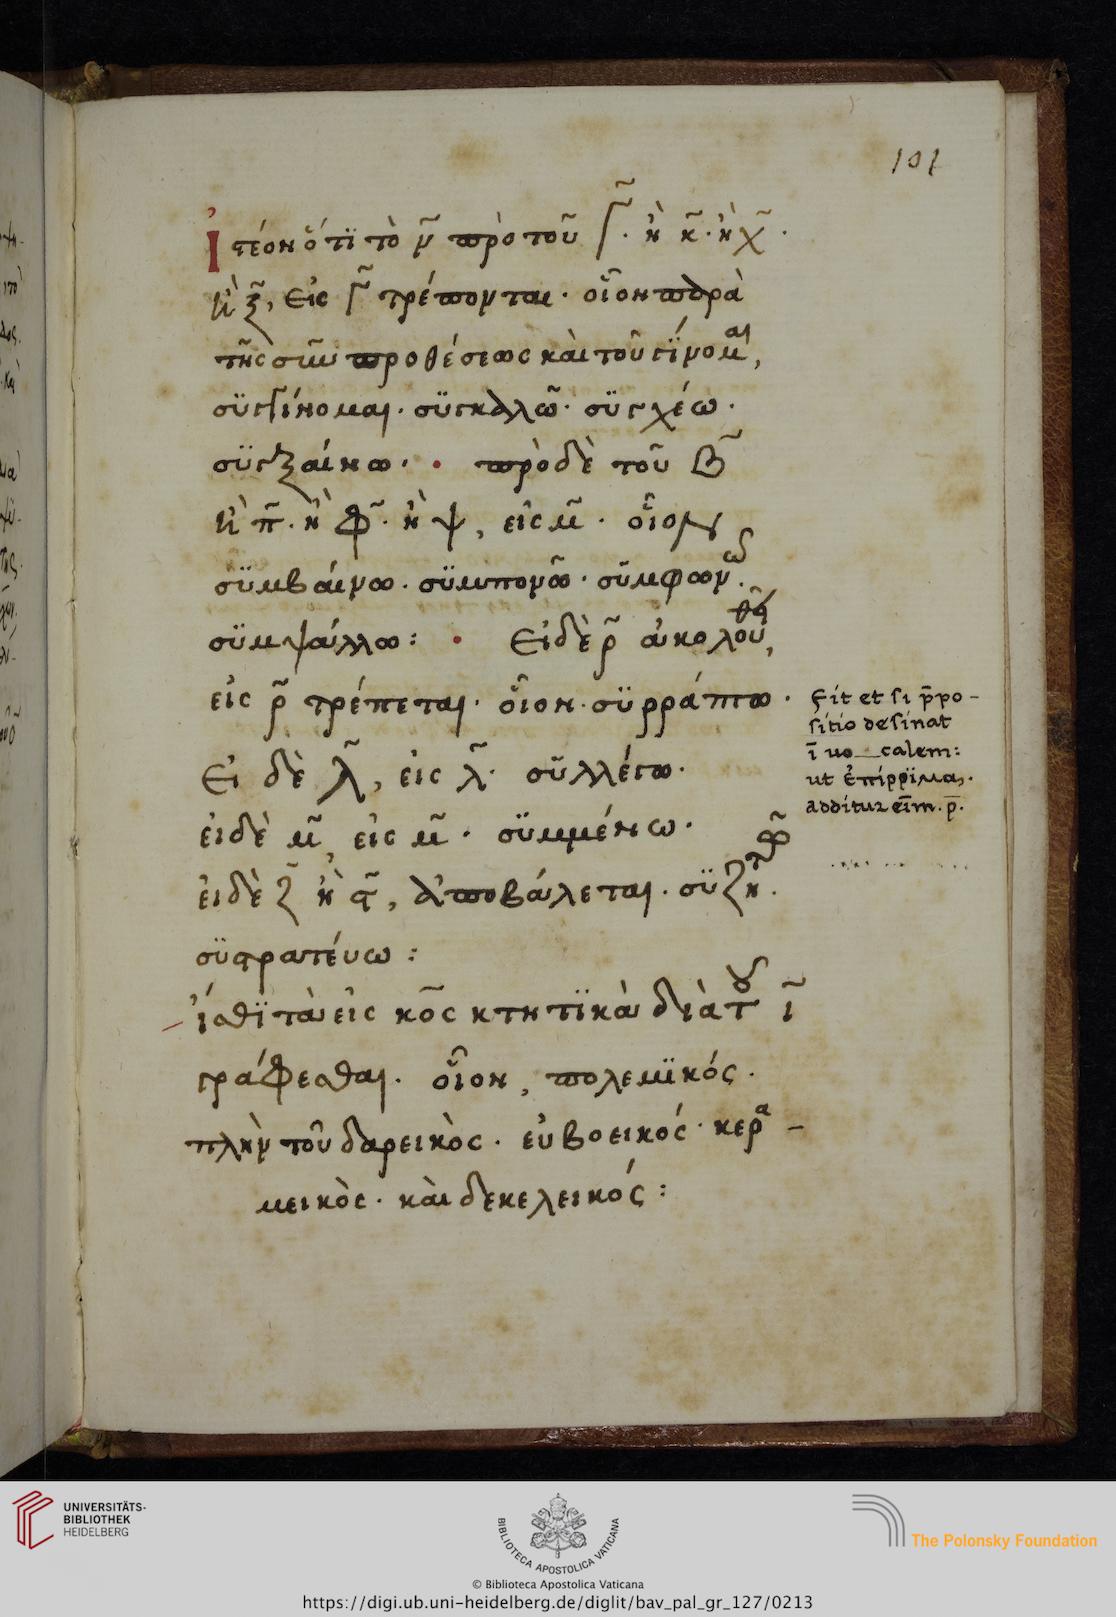 101
Ἰστέον ὅτι τὸ ν̃ πρὸ τοῦ γ̃· ἢ κ̃· ἢ χ̃·
ἢ ξ̃, εἰς γ̃ τρέπονται· οἷον παρὰ
τῆς σὺν προθέσεως καὶ τοῦ γίνομαι,
συγγίνομαι· συγκαλῶ· συγχέω·
συγξαίνω· πρὸ δὲ τοῦ β̃
ἢ π̃· ἢ φ̃· ἢ ψ, εἰς μ̃· οἷον
συμβαίνω· συμπονῶ· συμφων·
συμψάλλω: Εἰ δὲ ρ̃ ἀκολουθῇ,
εἰς ρ̃ τρέπεται· οἷον· συρράπτω·
Εἰ δὲ λ̃, εἰς λ̃· συλλέγω·
εἰ δὲ μ̃, εἰς μ̃· συμμένω·
εἰ δὲ ζ̃ ἢ σ̃, ἀποβάλεται· συζη·
συστρατεύω:
ἴσθι τὰ εἰς κος κτητικὰ διὰ τοῦ ῖ
γράφεσθαι· οἷον, πολεμικός·
πλὴν τοῦ δαρεικὸς· εὐβοεικός· κερα-
μεικὸς· καὶ δεκελεικός:
Fit et si p̄po-
sitio desinat
ī uo calem:
ut ἐπίρριμα,·
additur eīm. p̄.
UNIVERSITÄTS-
BIBLIOTHEK
HEIDELBERG
BIBLIOTECA APOSTOLICA VATICANA
The Polonsky Foundation
© Biblioteca Apostolica Vaticana
https://digi.ub.uni-heidelberg.de/diglit/bav_pal_gr_127/0213